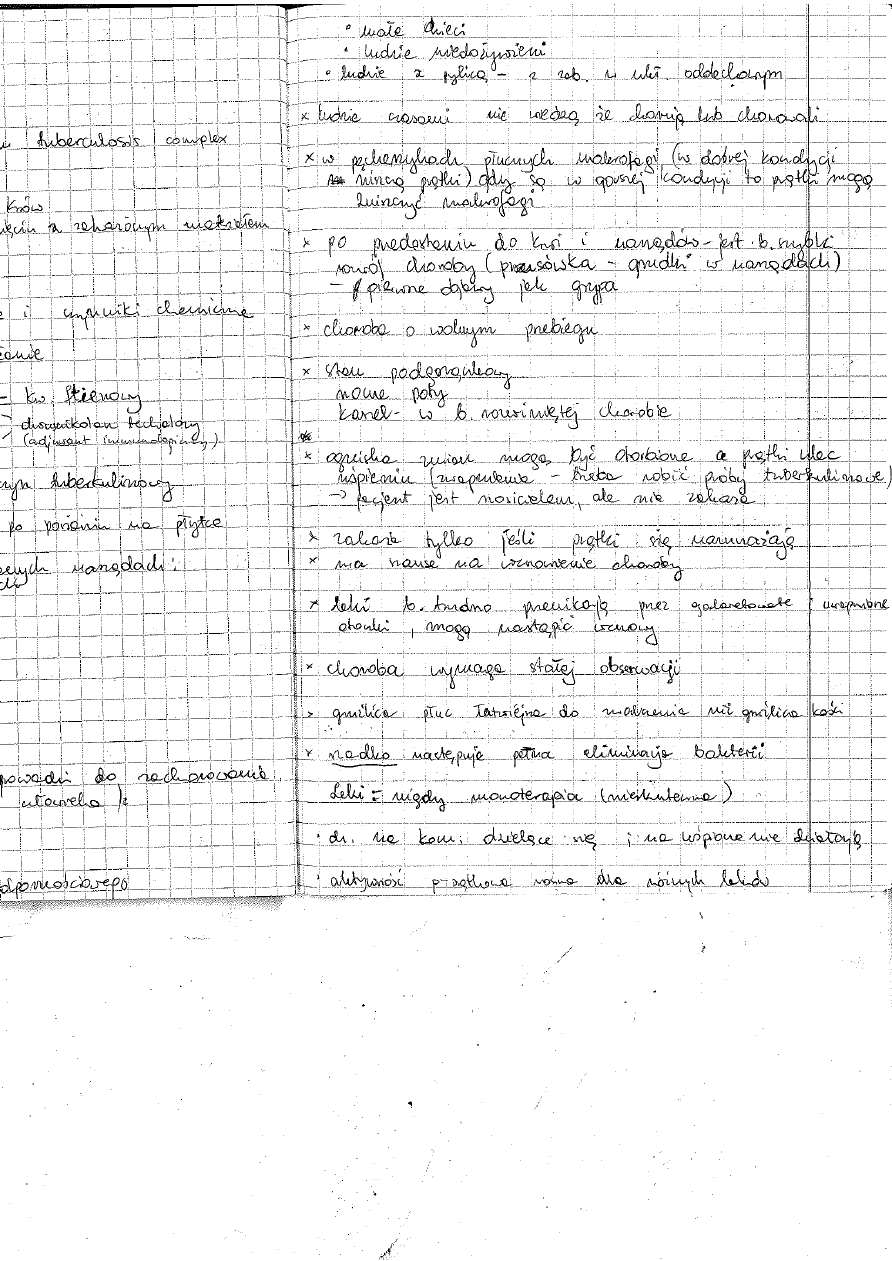 tuberculosis complex
krów
z zakażonym materiałem
i czynniki chemiczne
- kw. stienowy
(adjuwant immunologiczny)
tuberkulinowy
po posianiu na płytce
narządach:
do zachorowania
• małe dzieci
• ludzie niedożywieni
• ludzie z pylicą - z zab. w ukł. oddechowym
x ludzie czasami nie wiedzą że chorują lub chorowali
x w pęcherzykach płucnych makrofagi (w dobrej kondycji
niszczą prątki) gdy są w gorszej kondycji to prątki mogą
zniszczyć makrofagi
x po przedostaniu do krwi i narządów - jest b. szybki
rozwój choroby (prosówka - gruzełki w narządach)
- pierwsze objawy jak grypa
x choroba o wolnym przebiegu
x stan podgorączkowy
nocne poty
kaszel - w b. rozwiniętej chorobie
x ogniska zmian mogą być otorbione a prątki ulec
uśpieniu (zwapnienie - trzeba robić próby tuberkulinowe)
→ pacjent jest nosicielem, ale nie zakaża
x zakaża tylko jeśli prątki się namnażają
x ma szansę na wznowienie choroby
x leki b. trudno przenikają przez galaretowate i uwapnione
otoczki, mogą nastąpić wznowy
x choroba wymaga stałej obserwacji
x gruźlica płuc łatwiejsza do zwalczenia niż gruźlica kości
x rzadko następuje pełna eliminacja bakterii
Leki = nigdy monoterapia (nieskuteczna)
• dz. na kom. dzielące się i na uśpione nie działają
• aktywność p-prątkowa różna dla różnych leków